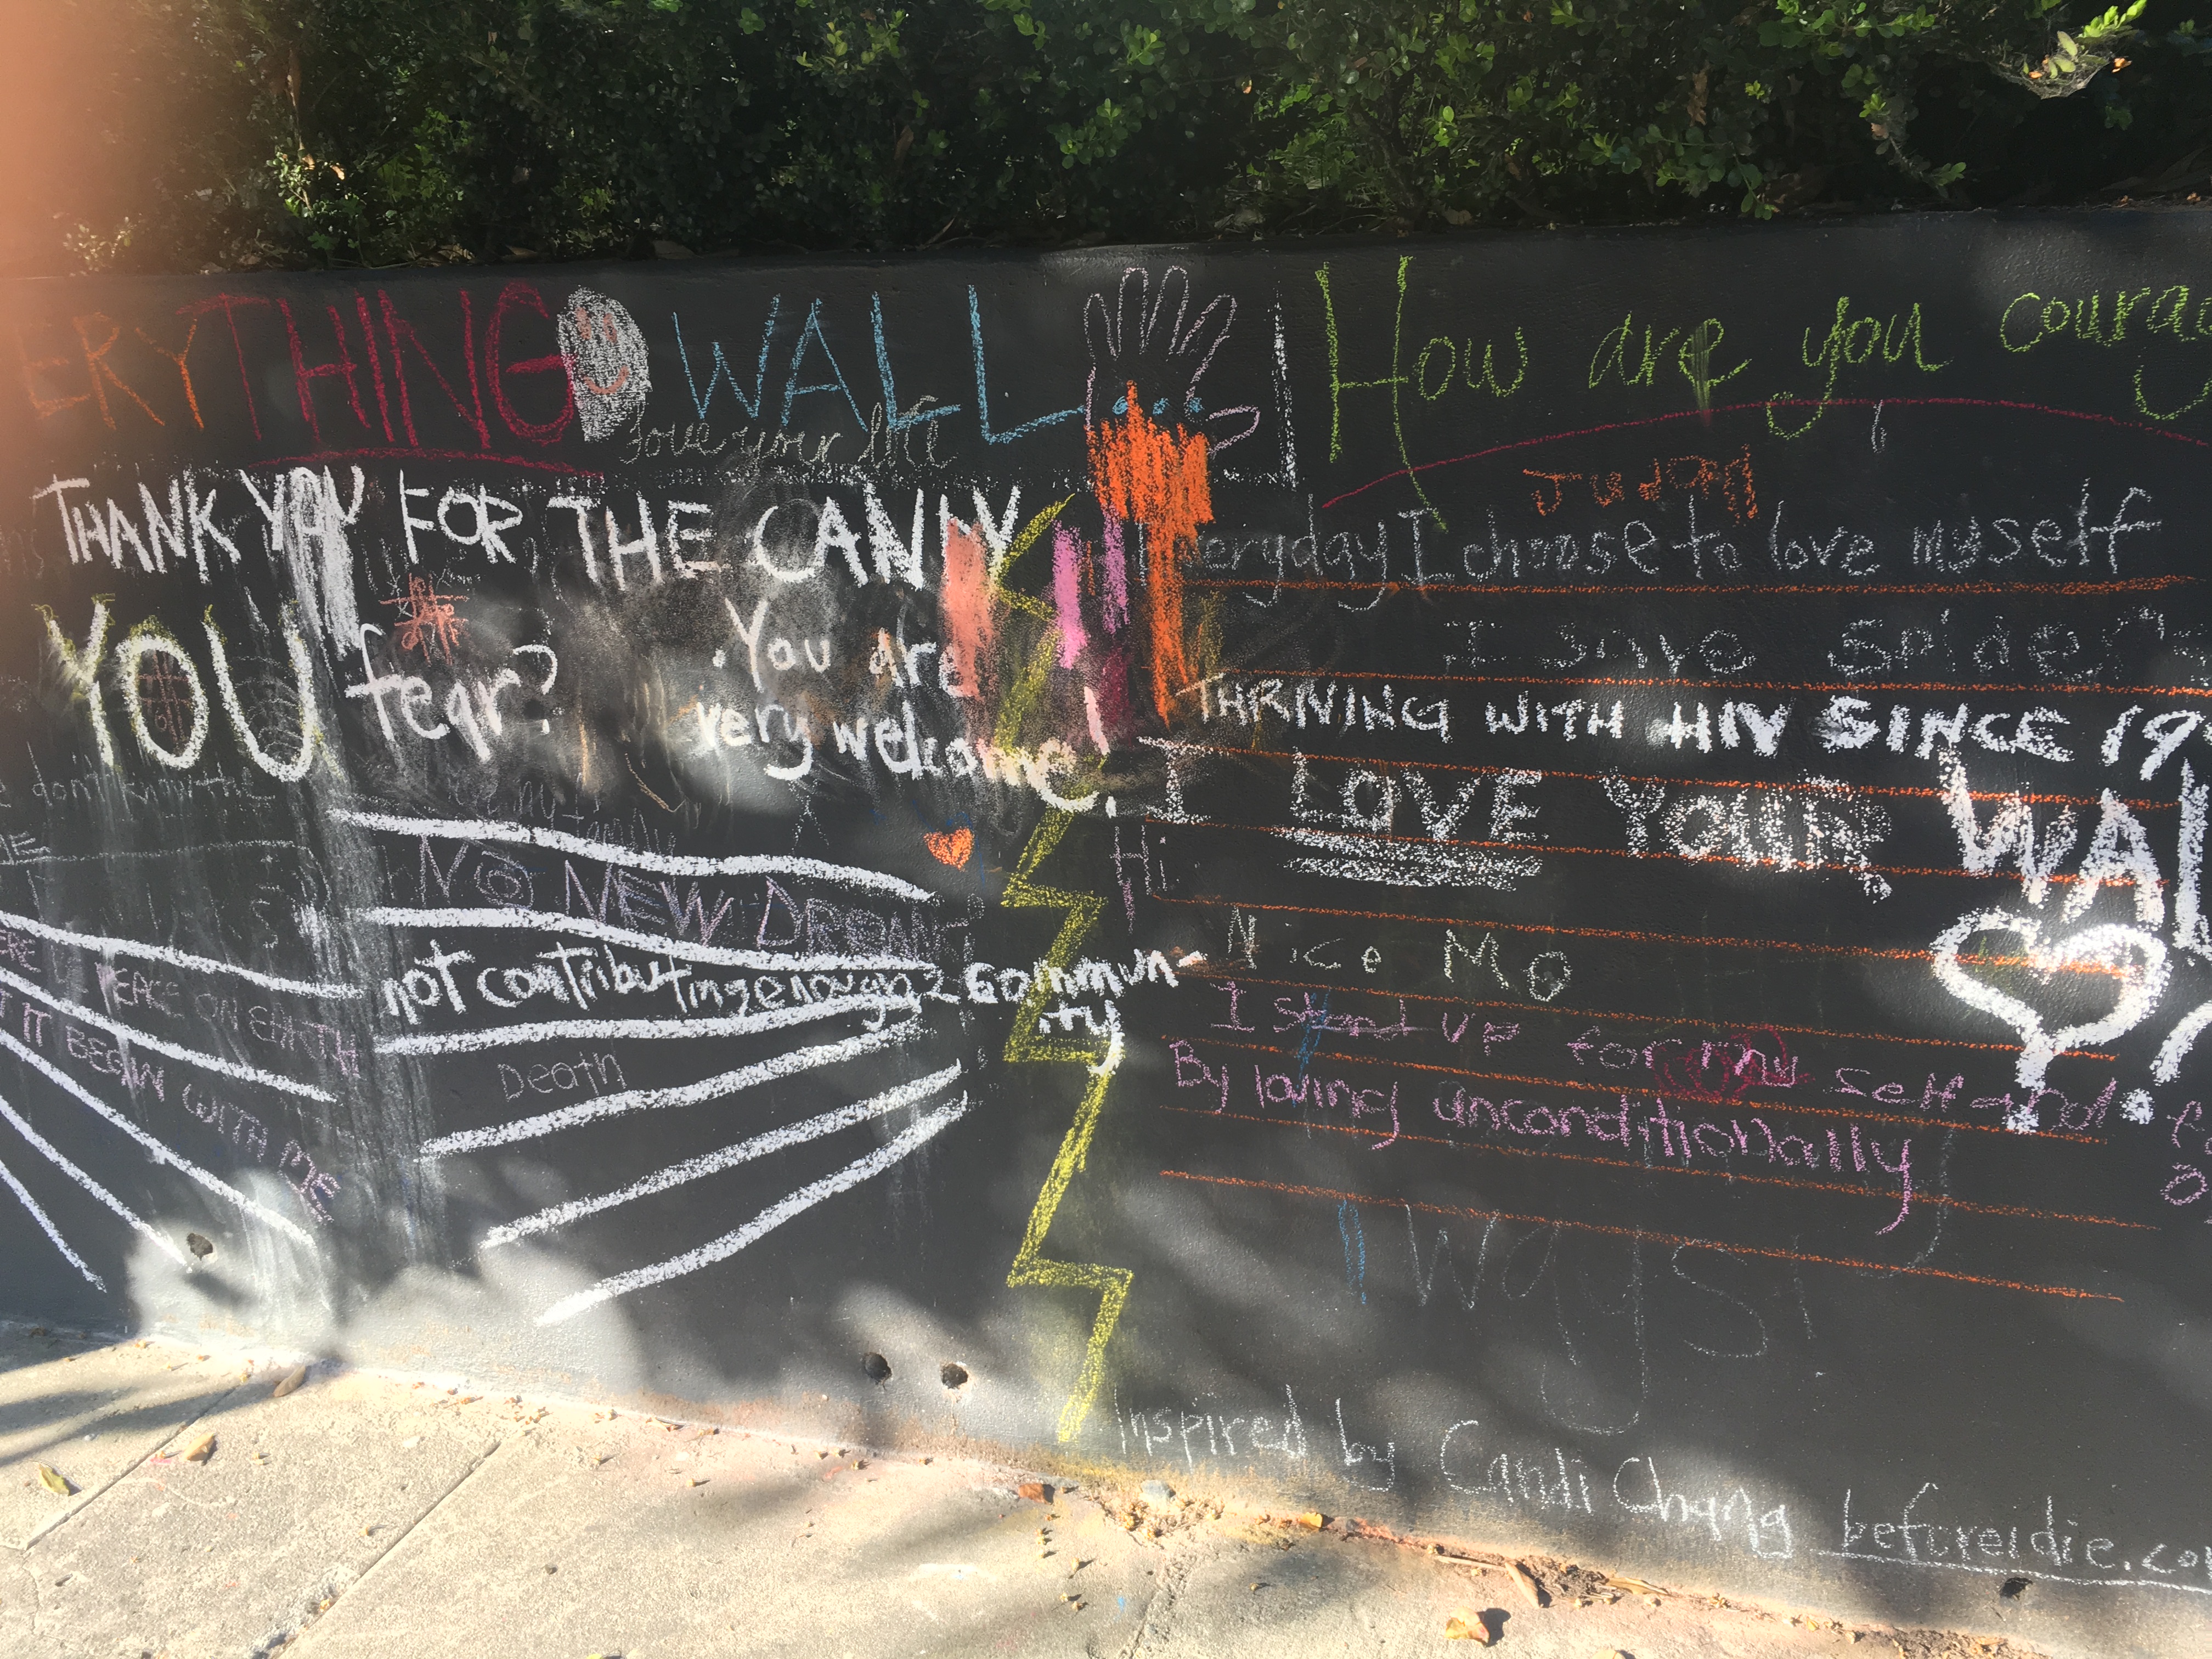 ERYTHING WALL...
love your life
THANK YOU FOR THE CANDY
YOU fear?
You are
very welcome!
don't know the
NO NEW DREAMS
not contributing enough 2 commun-
ity
Death
PEACE ON EARTH
IT BEGIN WITH ME
How are you courag
Judah
everyday I choose to love myself
I save spiders
THRIVING WITH HIV SINCE 19
I LOVE YOUR WAL
Hi
Nice Mo
I stand up for my self and
By loving unconditionally
ways!
Inspired by Candi Chang beforeidie.co